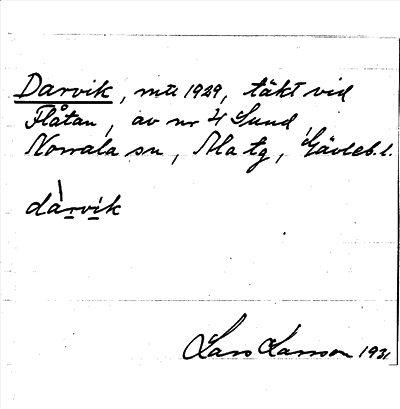 Darvik, mtl 1929, täkt vid
Flåtan, av nr 4 Sund
Norrala sn, Ala tg, Gävleb. l.
dàrvik
Lars Larsson 1931